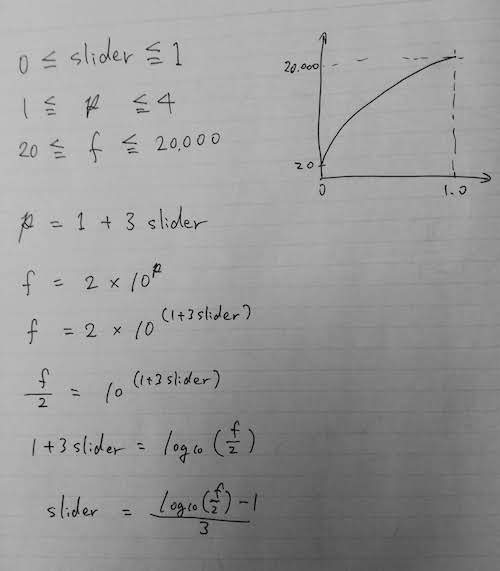 0 ≦ slider ≦ 1
1 ≦ p ≦ 4
20 ≦ f ≦ 20,000
20,000
20
0
1.0
p = 1 + 3 slider
f = 2 × 10^p
f = 2 × 10^(1+3slider)
f/2 = 10^(1+3slider)
1+3slider = log10 (f/2)
slider = (log10(f/2) - 1)/3